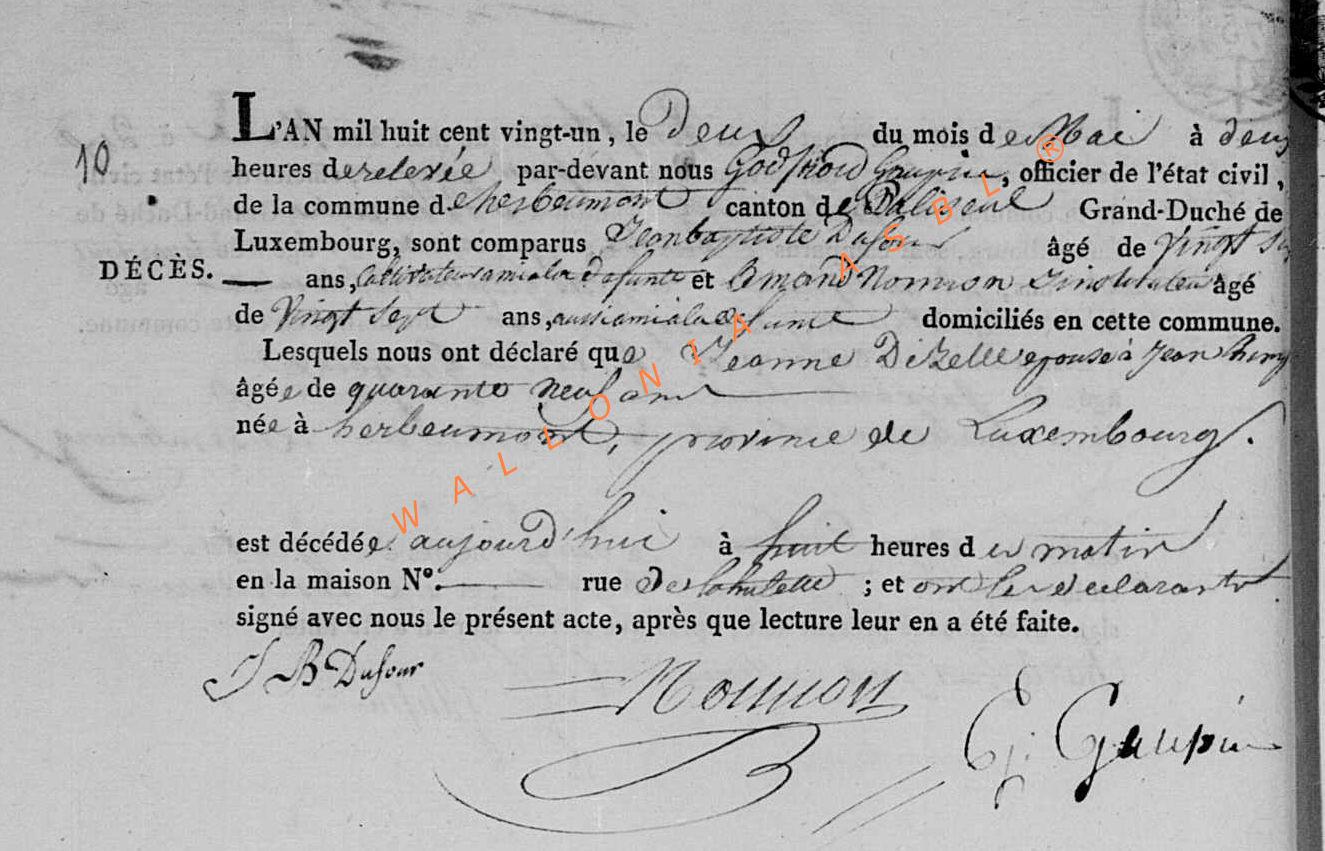 10
L'AN mil huit cent vingt-un, le Deux du mois de Mai à deux
heures de relevée par-devant nous Godfroid Gaupin, officier de l'état civil,
de la commune de herbeumont canton de Paliseul Grand-Duché de
Luxembourg, sont comparus Jean baptiste Dufour âgé de Vingt
DÉCÈS. — ans, Cultivateur ami a la defunte et Amand Nonnon Instituteur âgé
de Vingt Sept ans, aussi ami a la defunte domiciliés en cette commune.
Lesquels nous ont déclaré que Jeanne Dizelle epouse à Jean
âgée de quarante neuf ans
née à herbeumont, province de Luxembourg.
est décédée aujourd'hui à huit heures du matin
en la maison N°. — rue ; et ont les declarants
signé avec nous le présent acte, après que lecture leur en a été faite.
J B Dufour Nonnon G: Gaupin
WALLONIA ASBL ®